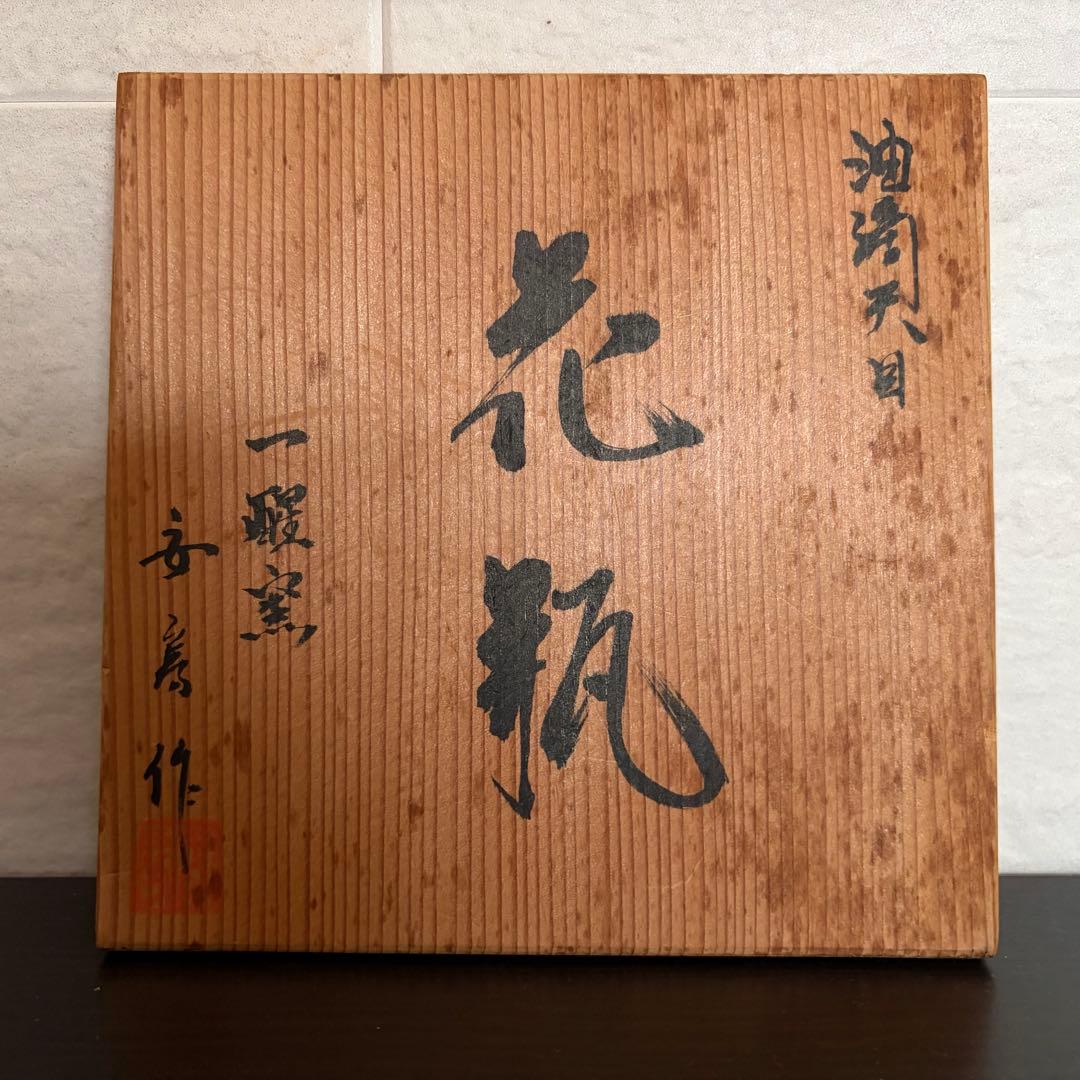 油滴天目
花瓶
一醒窯
安彦作